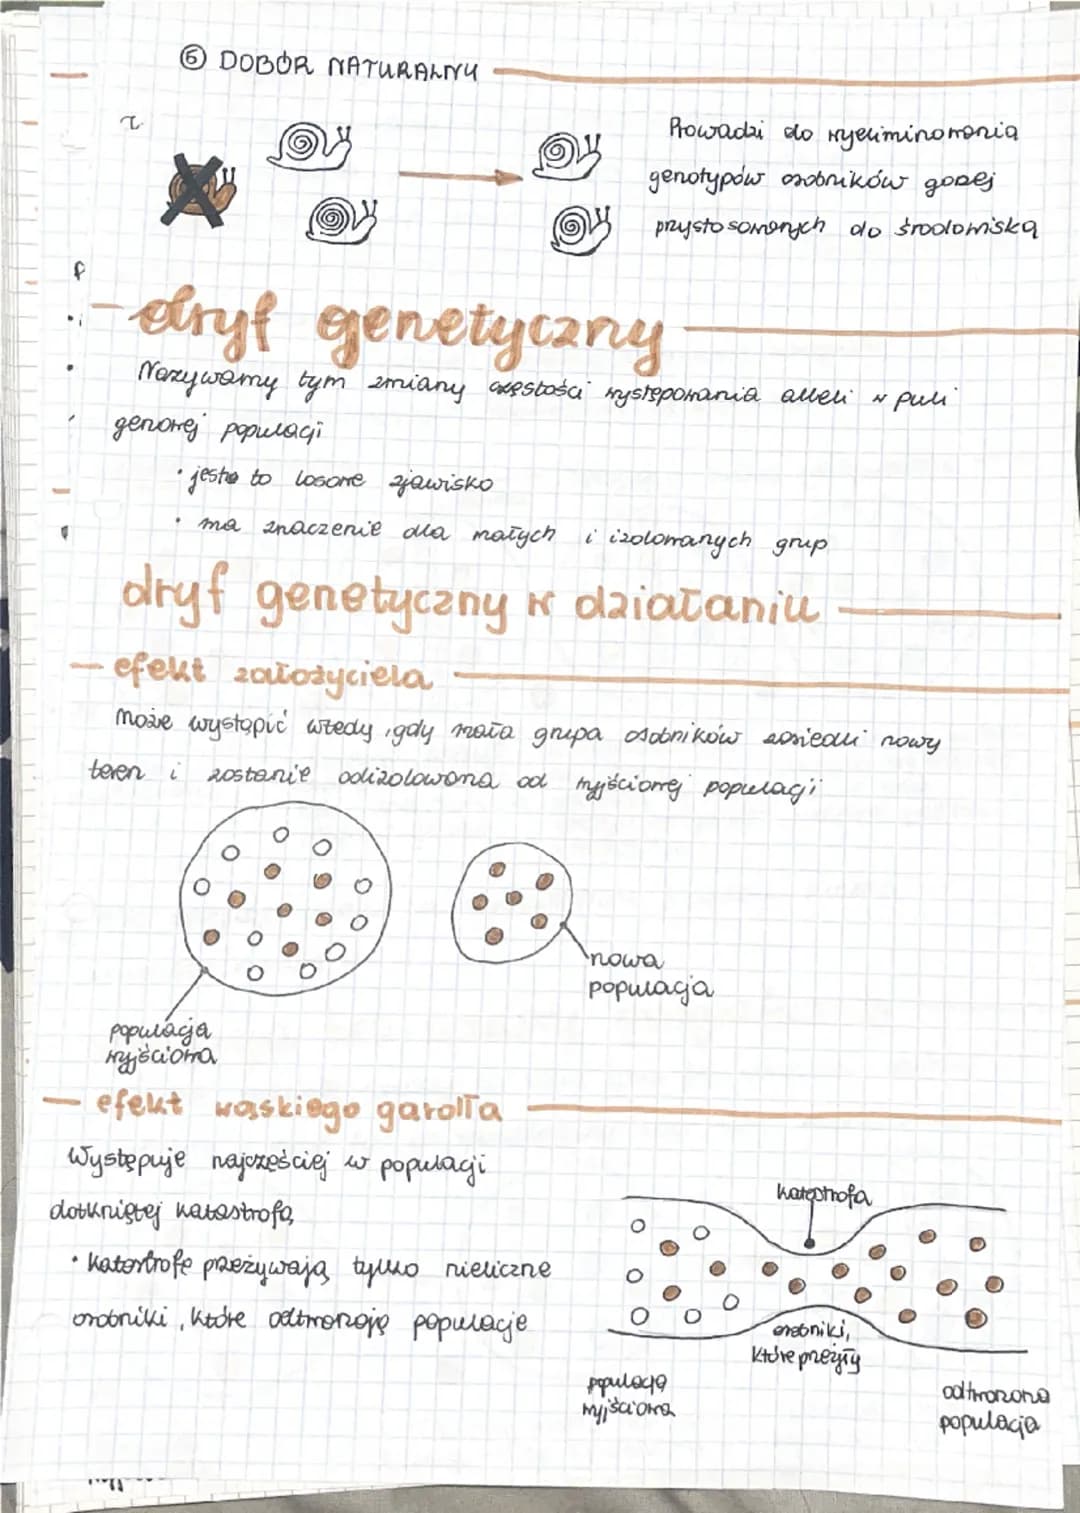 ⑥ DOBÓR NATURALNY
Prowadzi do wyeliminowania
genotypów osobników gorzej
przystosowanych do środowiska
dryf genetyczny
Nazywamy tym zmiany częstości występowania alleli w puli
genowej populacji
• jest to losowe zjawisko
• ma znaczenie dla małych i izolowanych grup
dryf genetyczny w działaniu
efekt założyciela
Może wystąpić wtedy, gdy mała grupa osobników zasiedli nowy
teren i zostanie odizolowana od wyjściowej populacji
nowa
populacja
populacja
wyjściowa
efekt wąskiego gardła
Występuje najczęściej w populacji
dotkniętej katastrofą
• katastrofę przeżywają tylko nieliczne
osobniki, które odtworzają populację
katastrofa
osobniki,
które przeżyły
populacja
wyjściowa
odtworzona
populacja